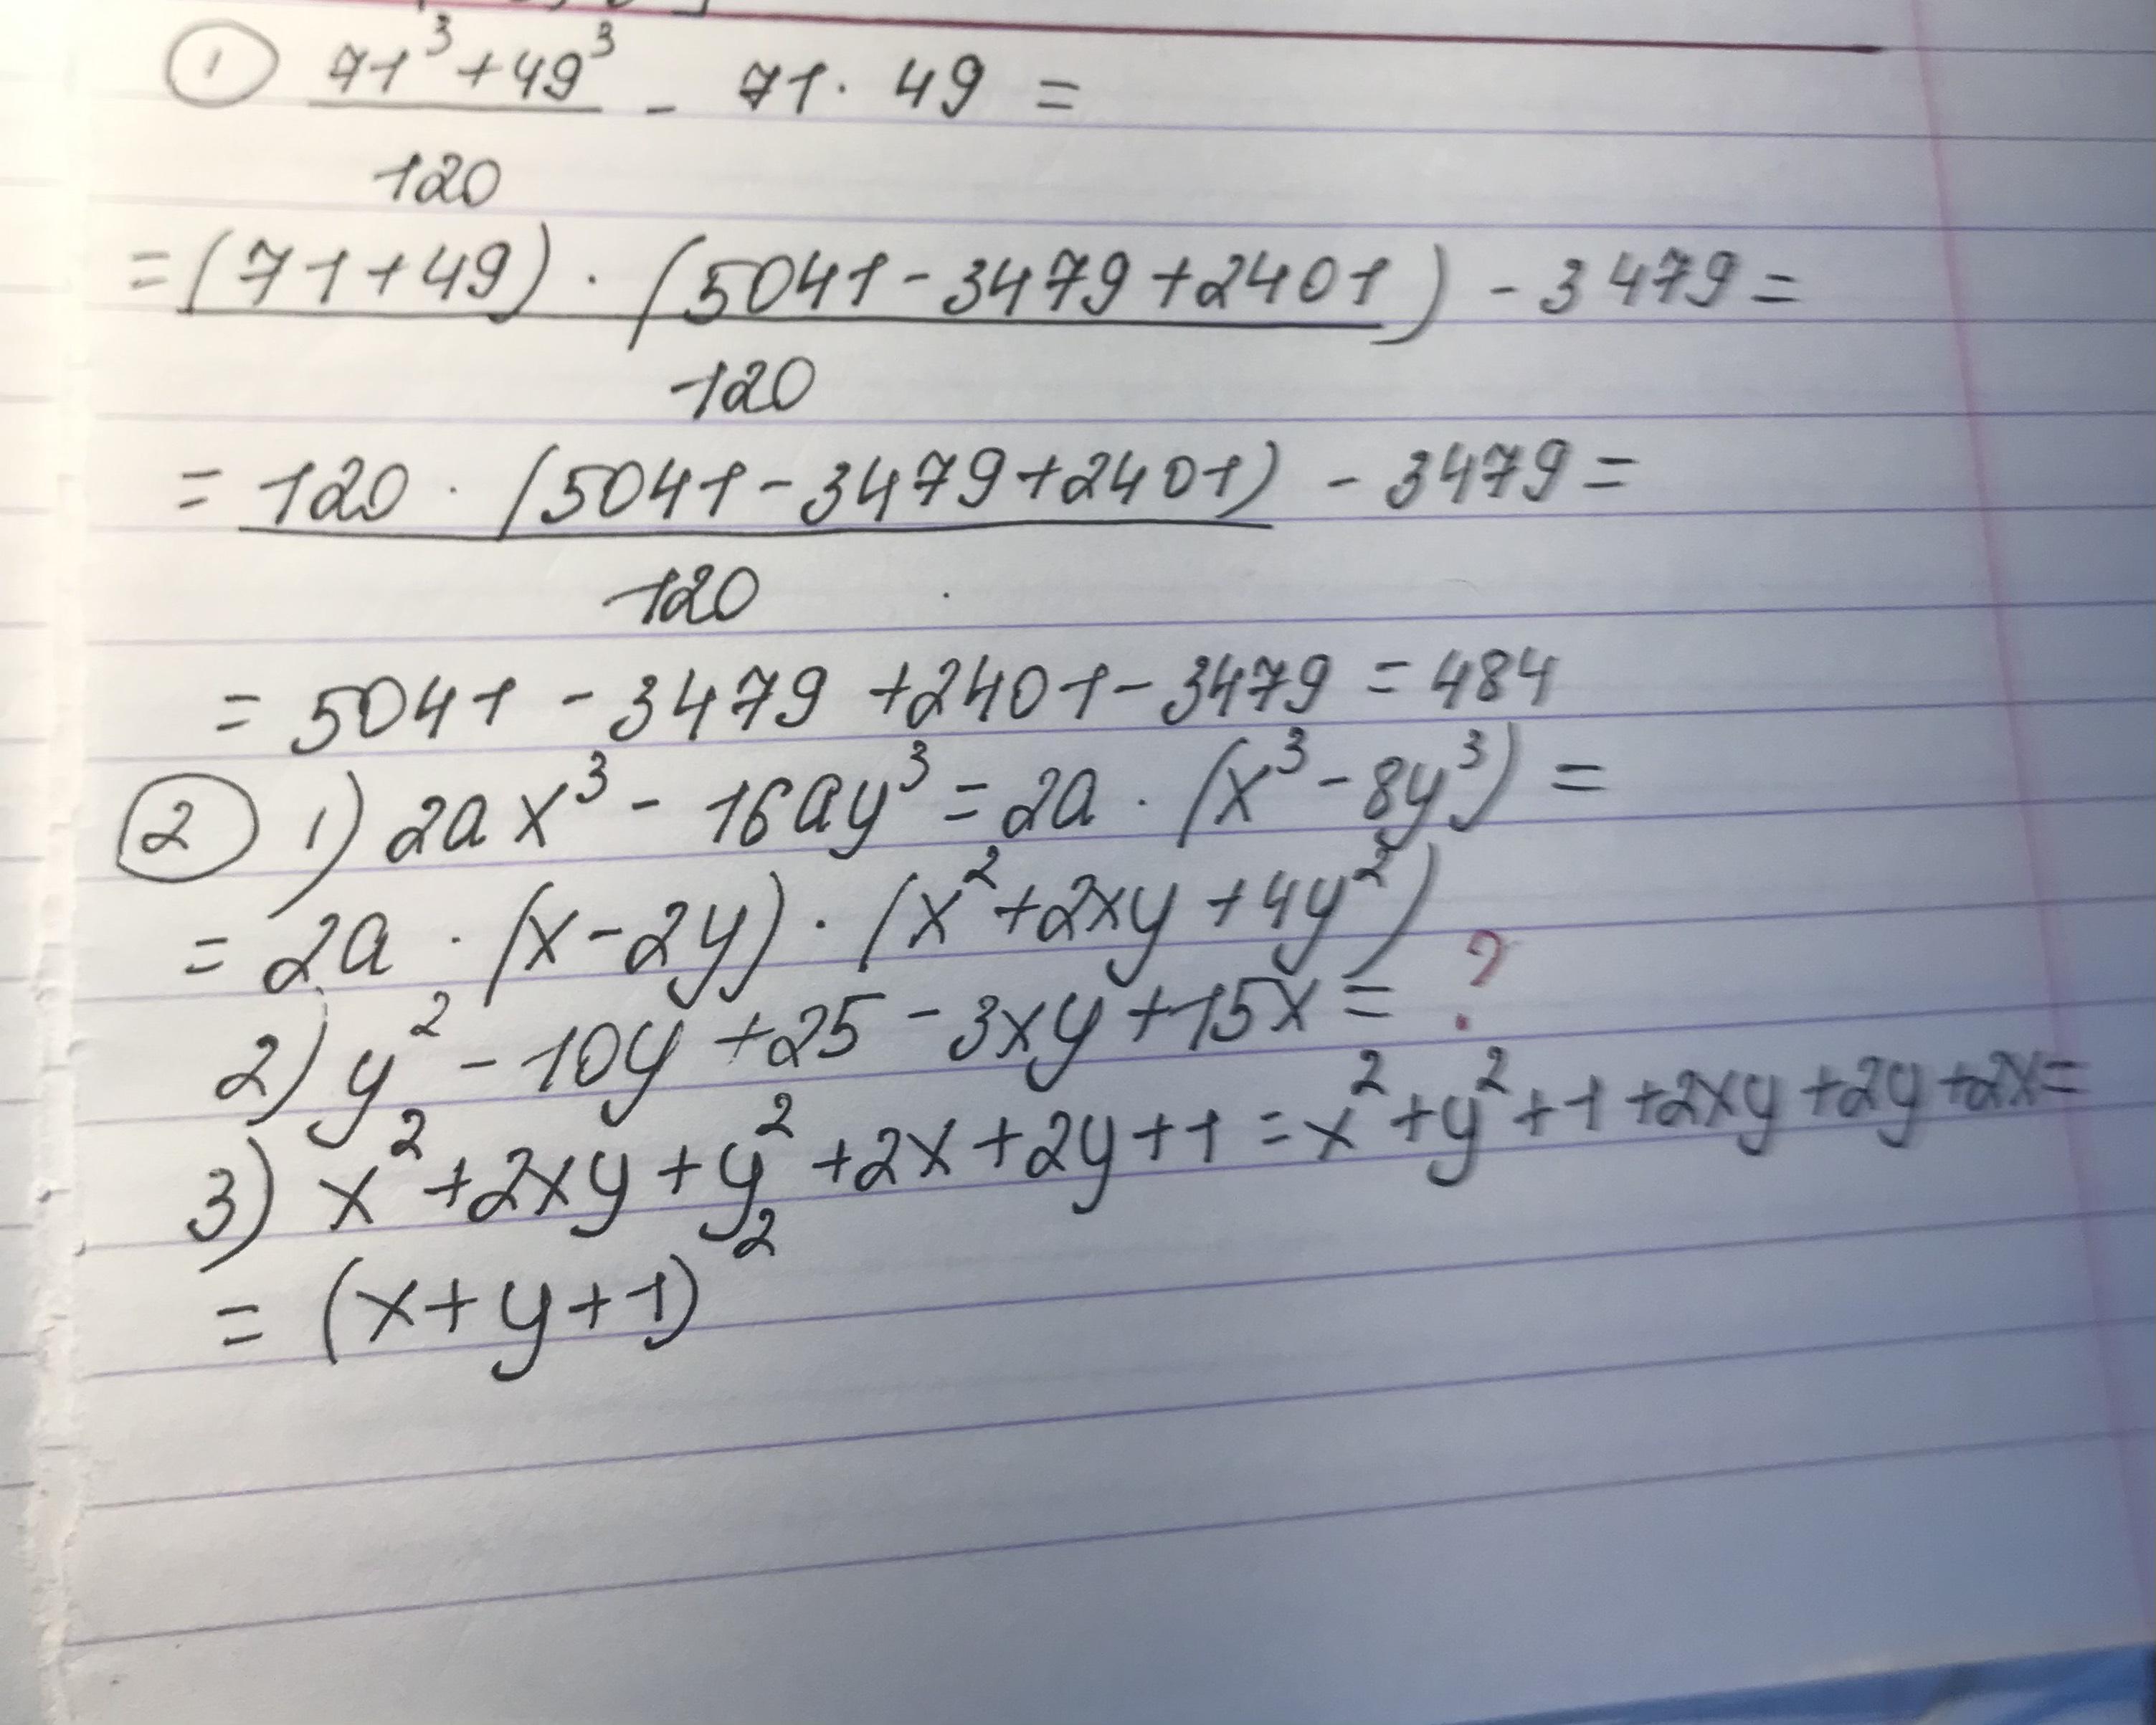 ① 71³+49³ - 71 · 49 =
120
= (71+49) · (5041-3479+2401) - 3479 =
120
= 120 · (5041-3479+2401) - 3479 =
120
= 5041 - 3479 +2401-3479 = 484
② 1) 2ax³ - 16ay³ = 2a · (x³-8y³) =
= 2a · (x-2y) · (x²+2xy+4y²)
2) y² - 10y +25 -3xy+15x = ?
3) x²+2xy+y²+2x+2y+1 = x²+y²+1+2xy+2y+2x=
= (x+y+1)²